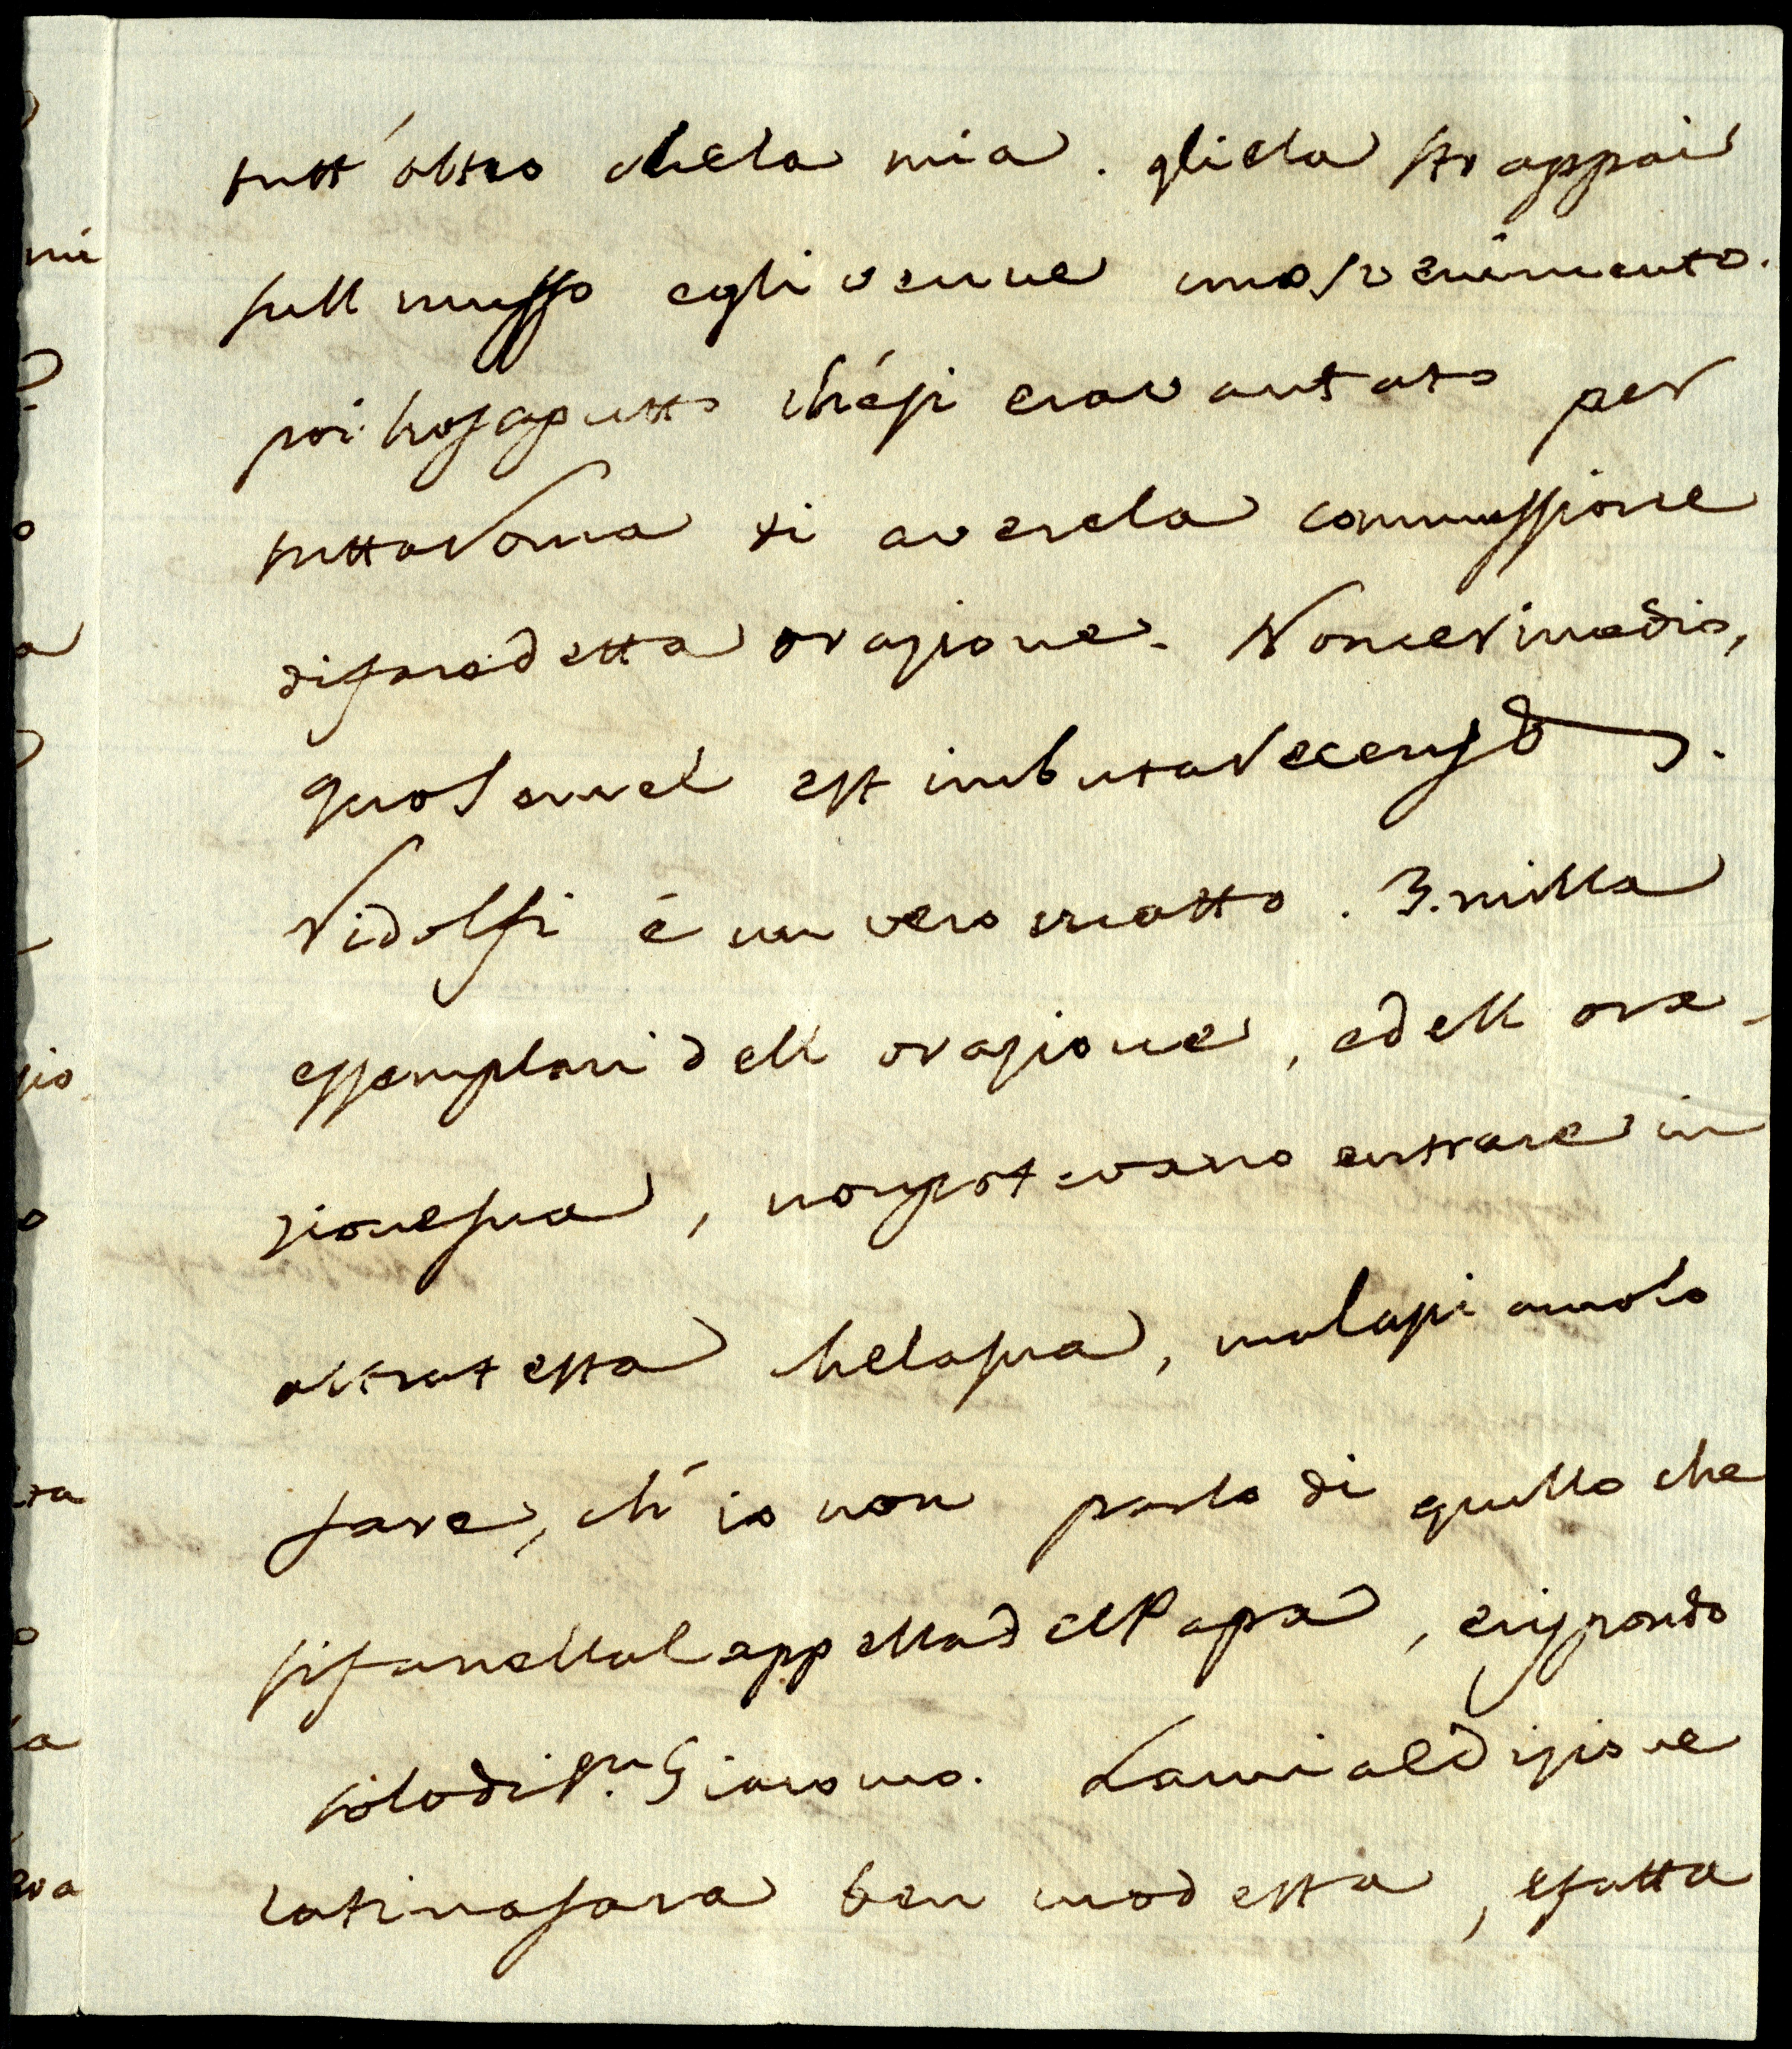 tutt'altro che la mia. gliela strappai
sull musso e gli venne uno svenimento.
poi ho saputto ch'e si era vantato per
tutta Roma di aver la commissione
di fare detta orazione. Non ce rimedio,
quo semel est imbuta recens &.
Ridolfi é un vero matto. 3. milla
essemplari dell orazione, e dell ora-
zione sua, non potevano entrare in
altra testa che la sua, ma lasiamolo
fare, ch'io non parlo di quello che
si fa nella Cappella del Papa, e rispondo
solo di Sn. Giacomo. La mia edizione
latina sara ben modesta, e fatta
mi
zio